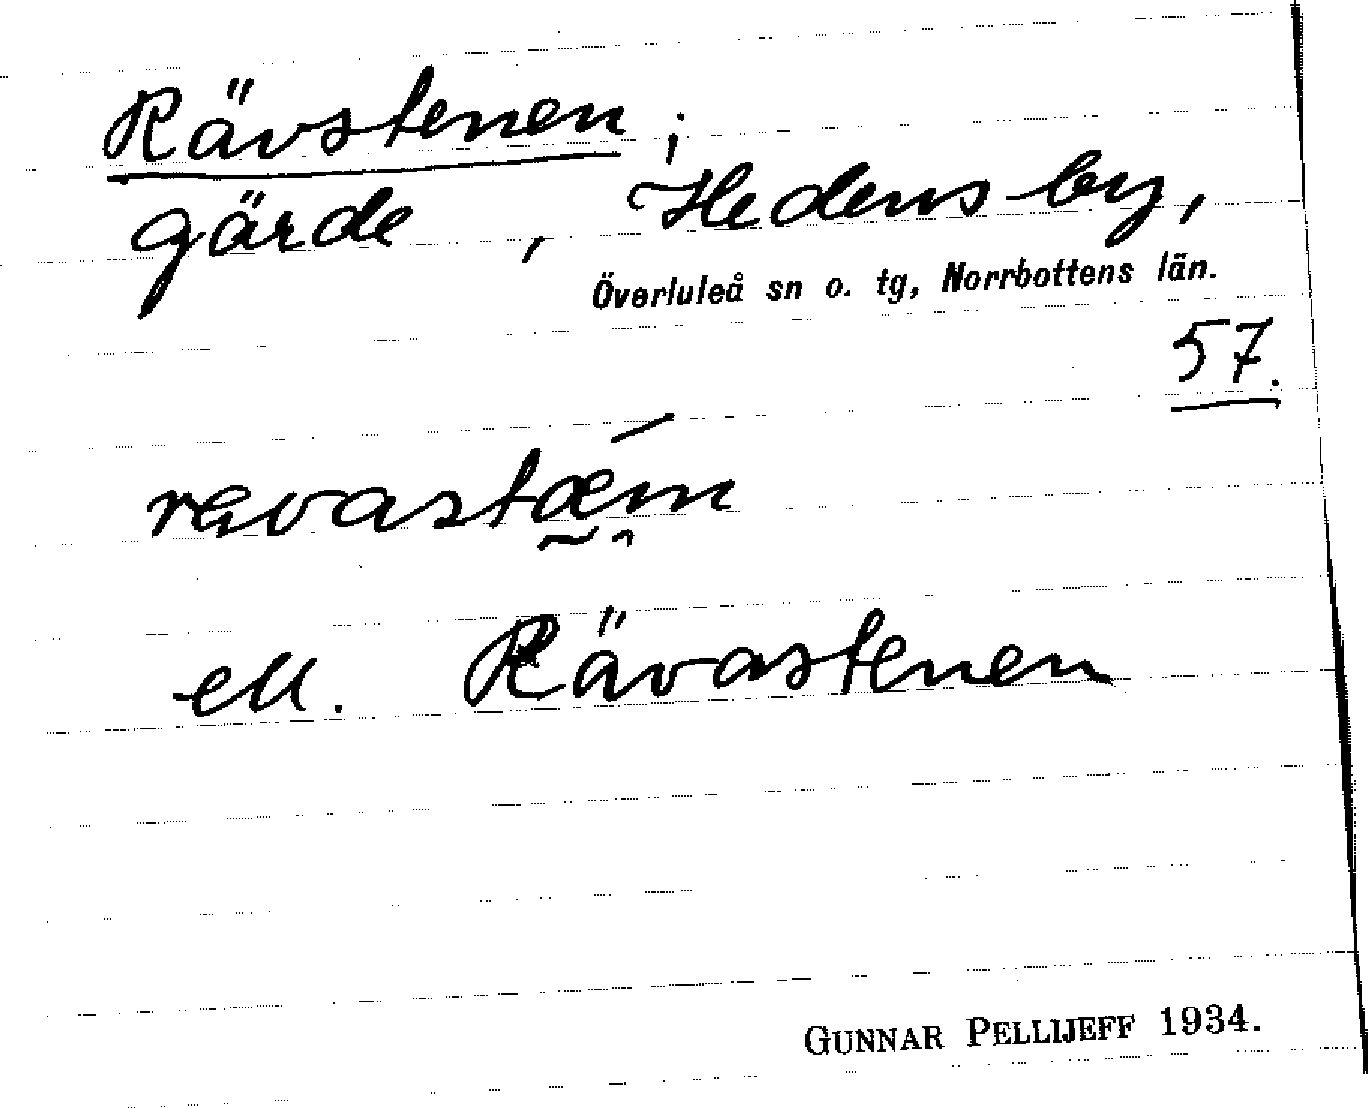 Rävstenen;
gärde, Hedensby,
Överluleå sn o. tg, Norrbottens län.
57.
ell. Rävastenen
GUNNAR PELLIJEFF 1934.